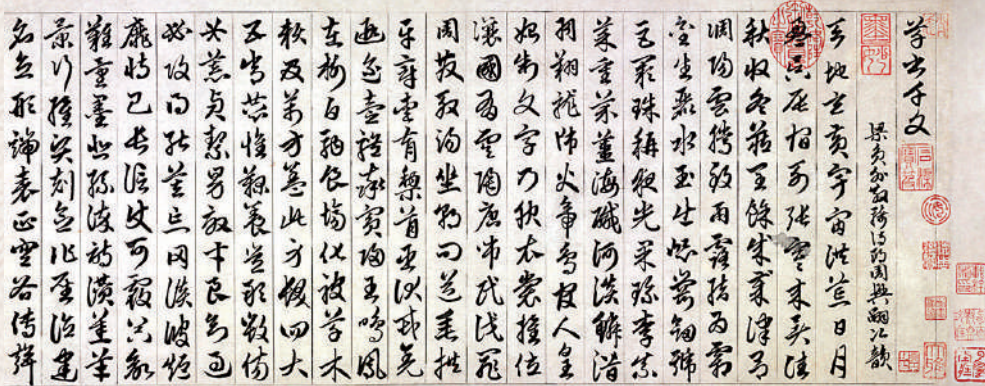 草書千文
梁員外散騎侍郎周興嗣次韻
天地玄黃宇宙洪荒日月
盈昃辰宿列張寒來暑往
秋收冬藏閏餘成歲律呂
調陽雲騰致雨露結為霜
金生麗水玉出崑崗劍號
巨闕珠稱夜光果珍李柰
菜重芥薑海鹹河淡鱗潛
羽翔龍師火帝鳥官人皇
始制文字乃服衣裳推位
讓國有虞陶唐弔民伐罪
周發殷湯坐朝問道垂拱
平章愛育黎首臣伏戎羌
遐邇壹體率賓歸王鳴鳳
在樹白駒食場化被草木
賴及萬方蓋此身髮四大
五常恭惟鞠養豈敢毀傷
女慕貞潔男效才良知過
必改得能莫忘罔談彼短
靡恃己長信使可覆器欲
難量墨悲絲染詩讚羔羊
景行維賢克念作聖德建
名立形端表正空谷傳聲